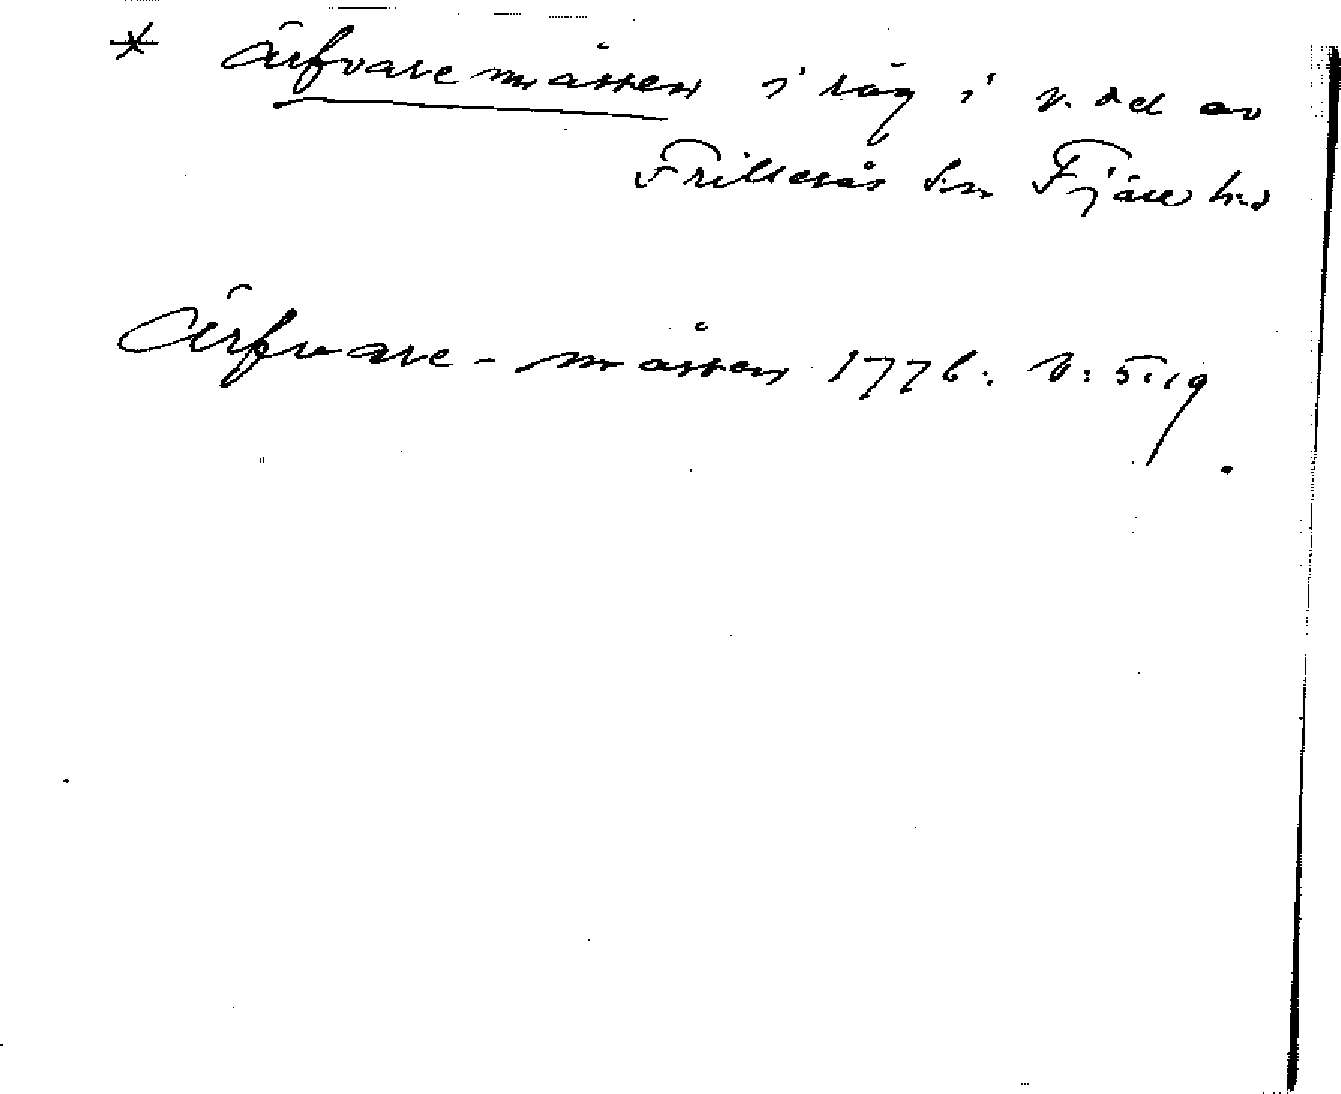 * Ärfvaremåssen i låg i v. del av
Frillesås sn Fjäre hd
Ärfvare-måssen 1776. V: 5:19